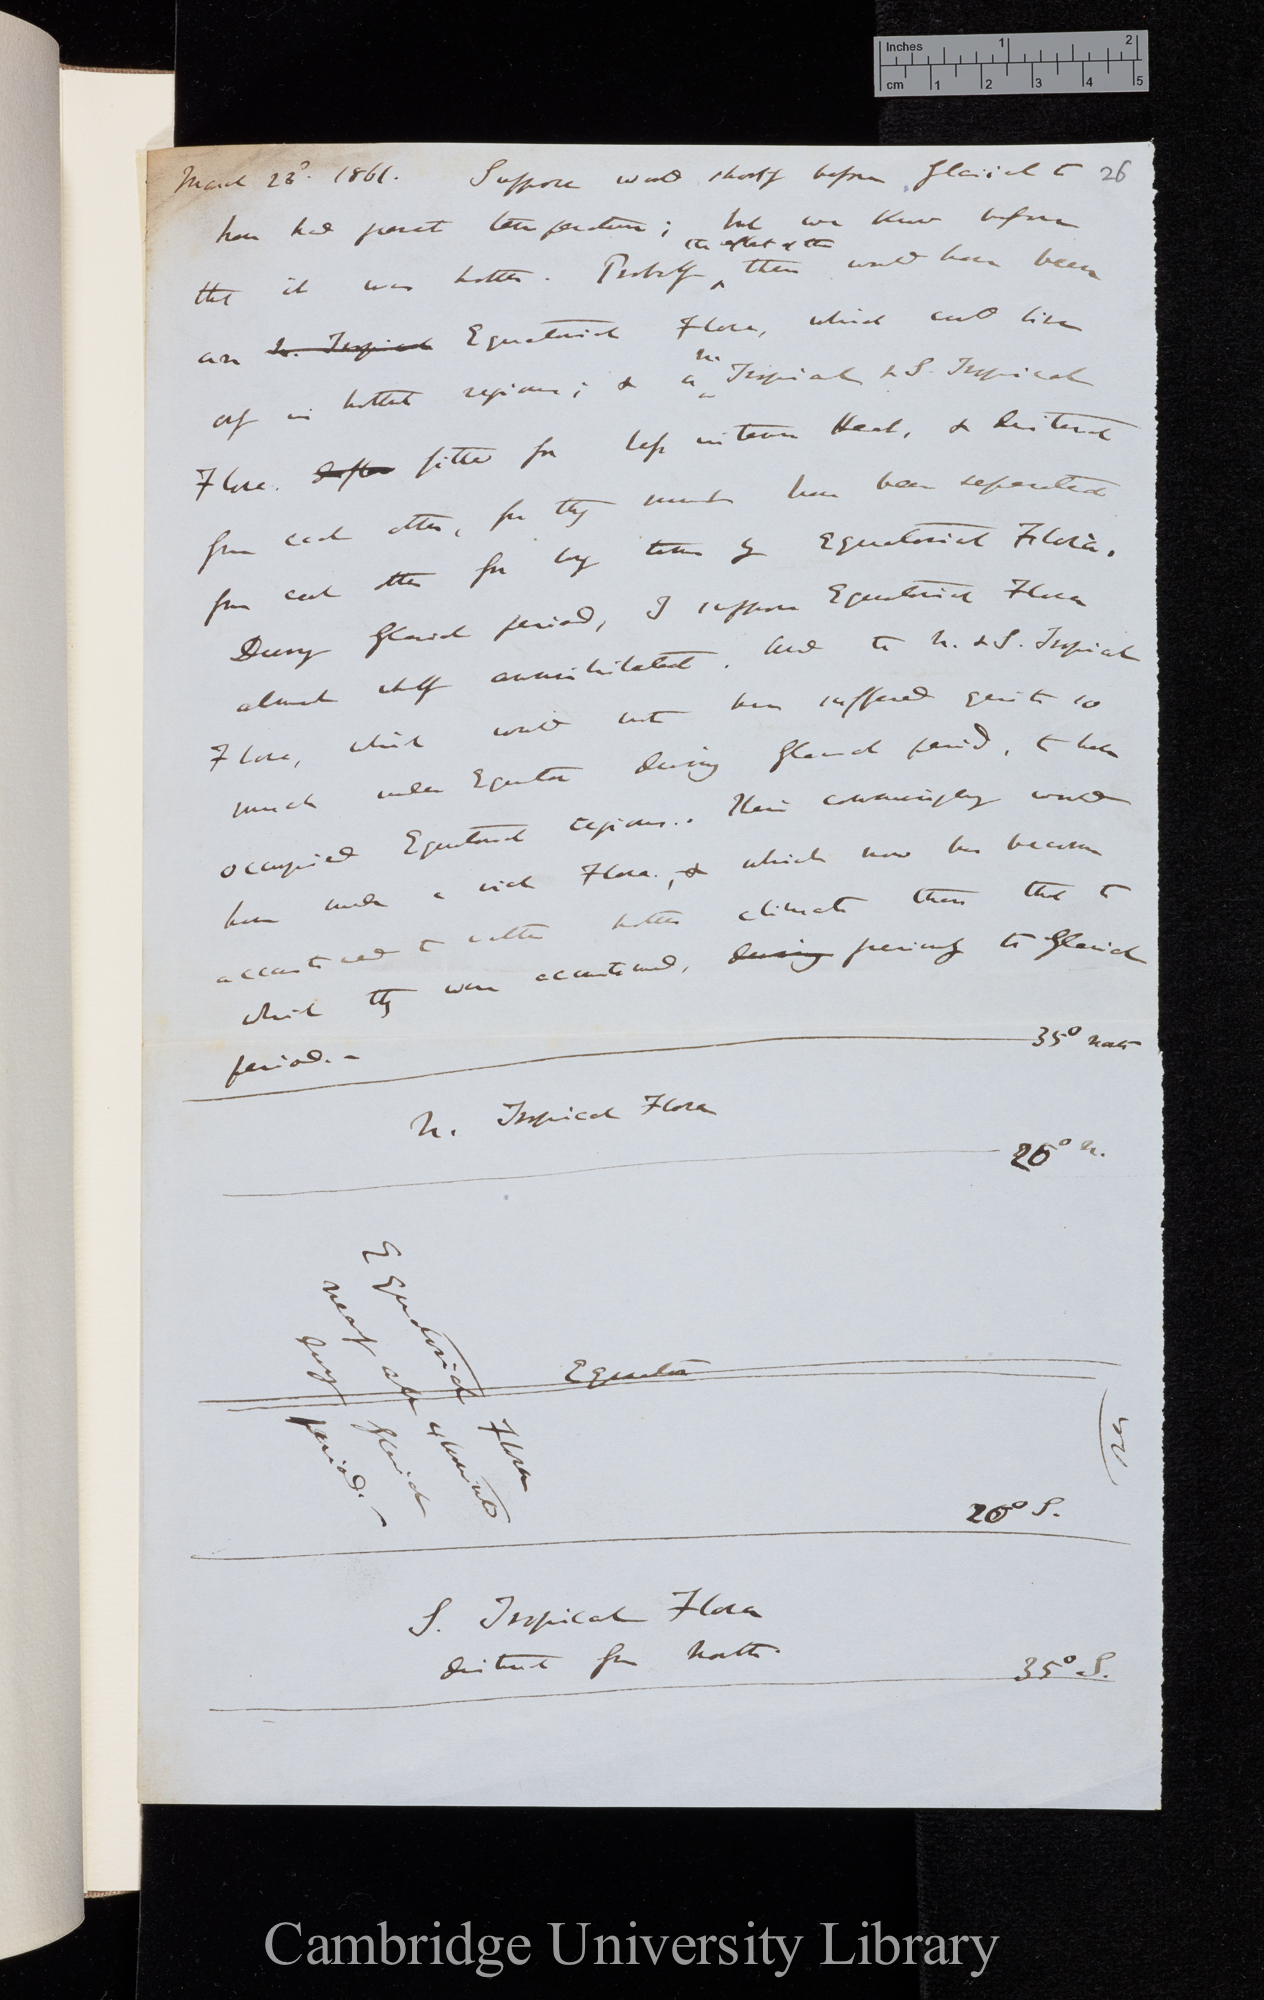 Inches 1 2
cm 1 2 3 4 5
March 23d. 1861. Suppose world shortly before Glacial to 26
have had present temperature; but we know before
that it was hotter. Probably the effect of this there would have been
an N. Tropical Equatorial Flora, which could live
only in hottest regions; & a N. Tropical & S. Tropical
Flora. fitted for less intense Heat, & distinct
from each other, for they must have been separated
from each other for long time by Equatorial Flora.
During Glacial period, I suppose Equatorial Flora
almost wholly annihilated. And the N. & S. Tropical
Flora, which would not have suffered quite so
much under Equator during Glacial period, to have
occupied Equatorial regions. Their commingling would
have made a rich Flora, & which now has become
accustomed to rather hotter climate than that to
which they were accustomed, during previously to Glacial
period. —
35° North
N. Tropical Flora
26° N.
Equatorial Flora
nearly all exterminated
during Glacial
period. —
Equator
26° S.
S. Tropical Flora
distinct from North.
35° S.
Cambridge University Library